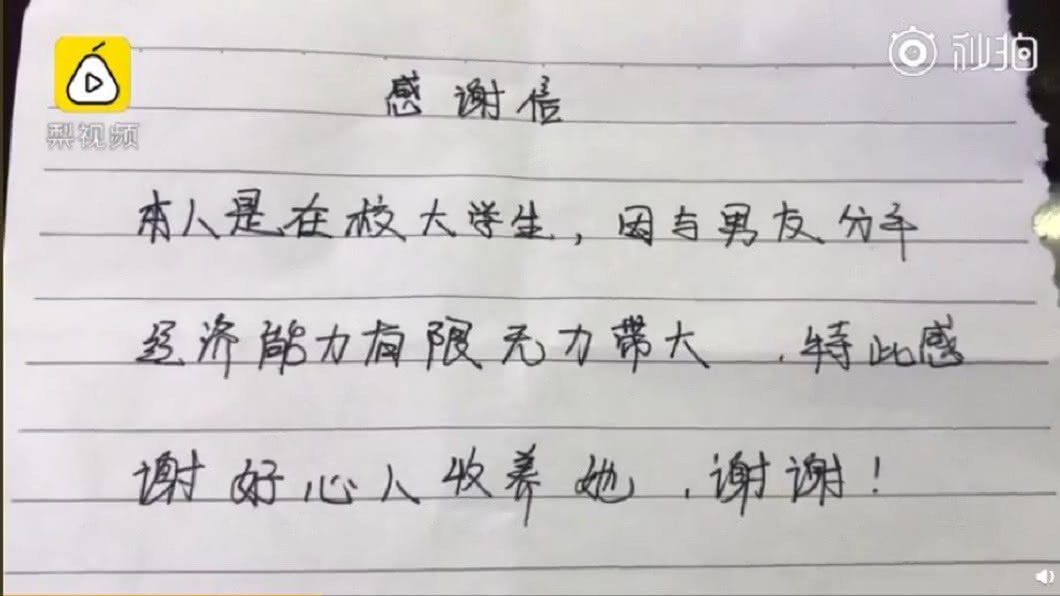 梨视频
秒拍
感谢信
本人是在校大学生，因与男友分手
经济能力有限无力带大，特此感
谢好心人收养她，谢谢！